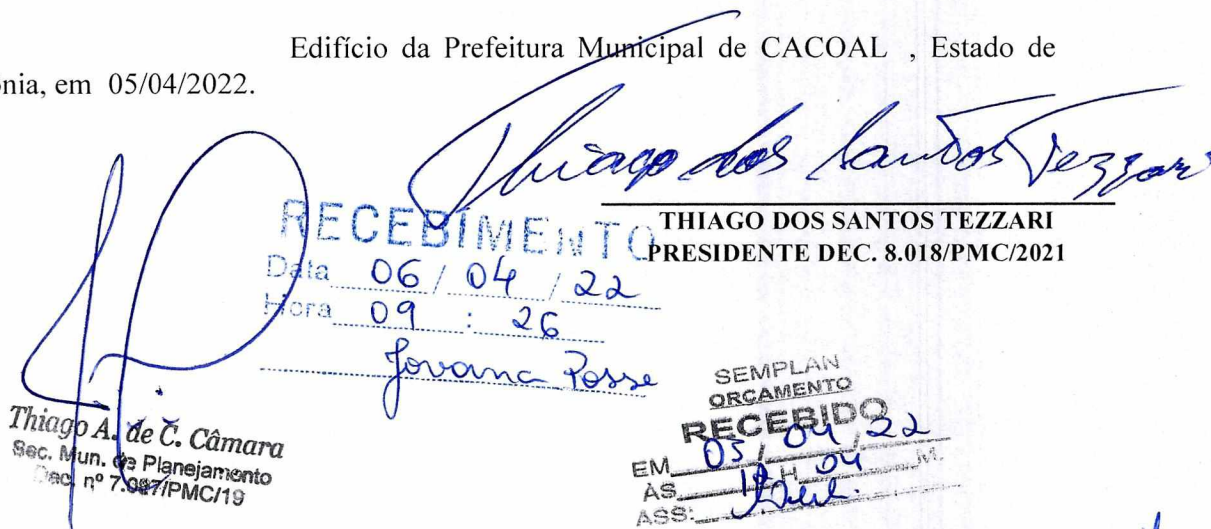 Edifício da Prefeitura Municipal de CACOAL , Estado de
nia, em 05/04/2022.
Thiago dos Santos Tezzari
THIAGO DOS SANTOS TEZZARI
PRESIDENTE DEC. 8.018/PMC/2021
RECEBIMENTO
Data 06 / 04 / 22
Hora 09 : 26
Jovana Posse
Thiago A. de C. Câmara
Sec. Mun. de Planejamento
Dec. nº 7.087/PMC/19
SEMPLAN
ORÇAMENTO
RECEBIDO
EM 05 / 04 / 22
ÀS H 04 M.
ASS: